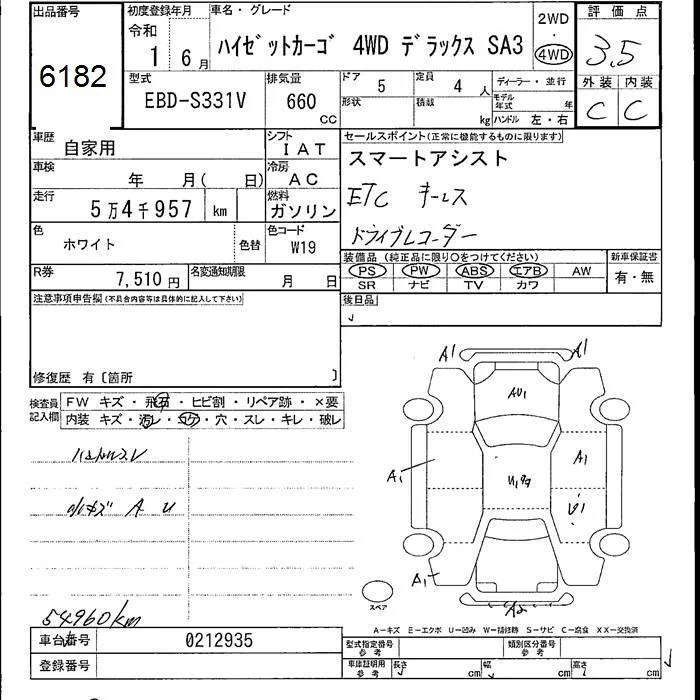 出品番号
6182
初度登録年月
令和
1 6月
車名・グレード
ハイゼットカーゴ 4WD デラックス SA3
2WD
・
4WD
評価点
3.5
外装 内装
C C
型式
EBD-S331V
排気量
660
cc
ドア
5
定員
4 人
形状
積載
kg
ディーラー・並行
モデル年式 年
ハンドル 左・右
車歴
自家用
シフト
IAT
車検
年 月( 日)
冷房
AC
走行
5万4千957 km
燃料
ガソリン
色
ホワイト
色替
色コード
W19
R券
7,510円
名変通知期限
月 日
セールスポイント(正常に機能するものに限ります)
スマートアシスト
ETC キーレス
ドライブレコーダー
装備品 (純正品に限り○をつけてください)
PS PW ABS エアB AW
SR ナビ TV カワ
新車保証書
有・無
後日品
注意事項申告欄(不具合内容等は具体的に記入して下さい)
修復歴 有〔箇所 〕
検査員
記入欄
FW キズ・飛石・ヒビ割・リペア跡・×要
内装 キズ・汚レ・コゲ・穴・スレ・キレ・破レ
小キズ A U
54960km
A1 A1
AU1
A1
A1
A1
スペア
A-キズ E-エクボ U-凹み W-補修跡 S-サビ C-腐食 XX-交換済
車台番号
0212935
登録番号
型式指定番号
参考
類別区分番号
参考
車庫証明用
参考
長さ cm 幅 cm 高さ cm